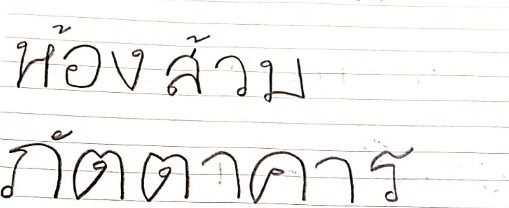 ห้องส้วม
ภัตตาคาร